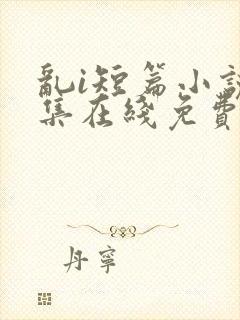 亂i短篇小說
集在綫免費
丹寧